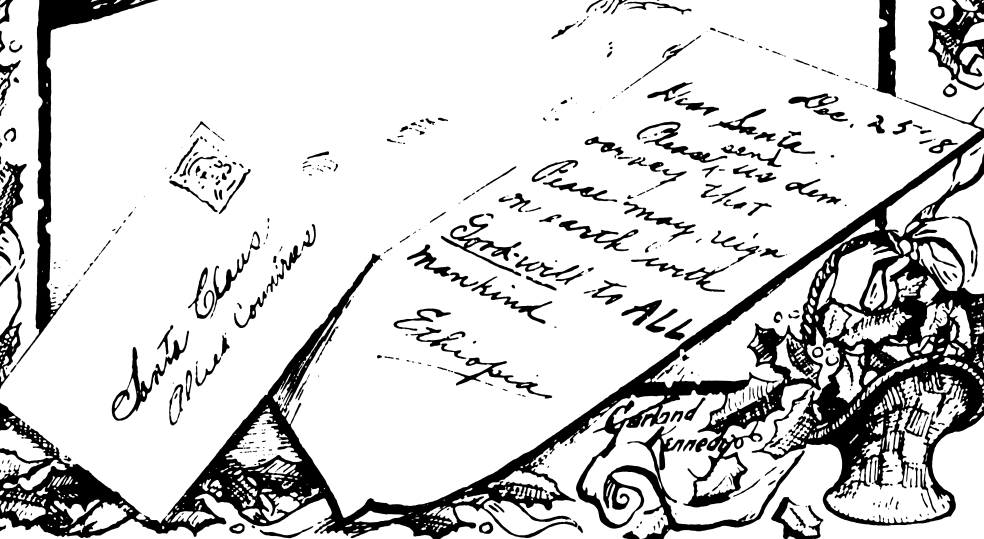 Santa Claus,
Allied Countries
Dec. 25-'18
Dear Santa.
Please send
us dem-
ocracy that
Peace may reign
on earth with
Good-will to ALL
mankind.
Ethiopia
Garland